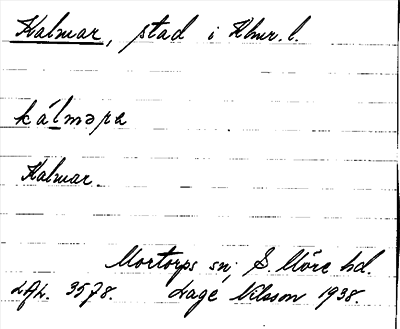 Kalmar, stad i Klmr. l.
Kalmar.
Mortorps sn, S. Möre hd.
LAL. 3578. Lage Nilsson 1938.